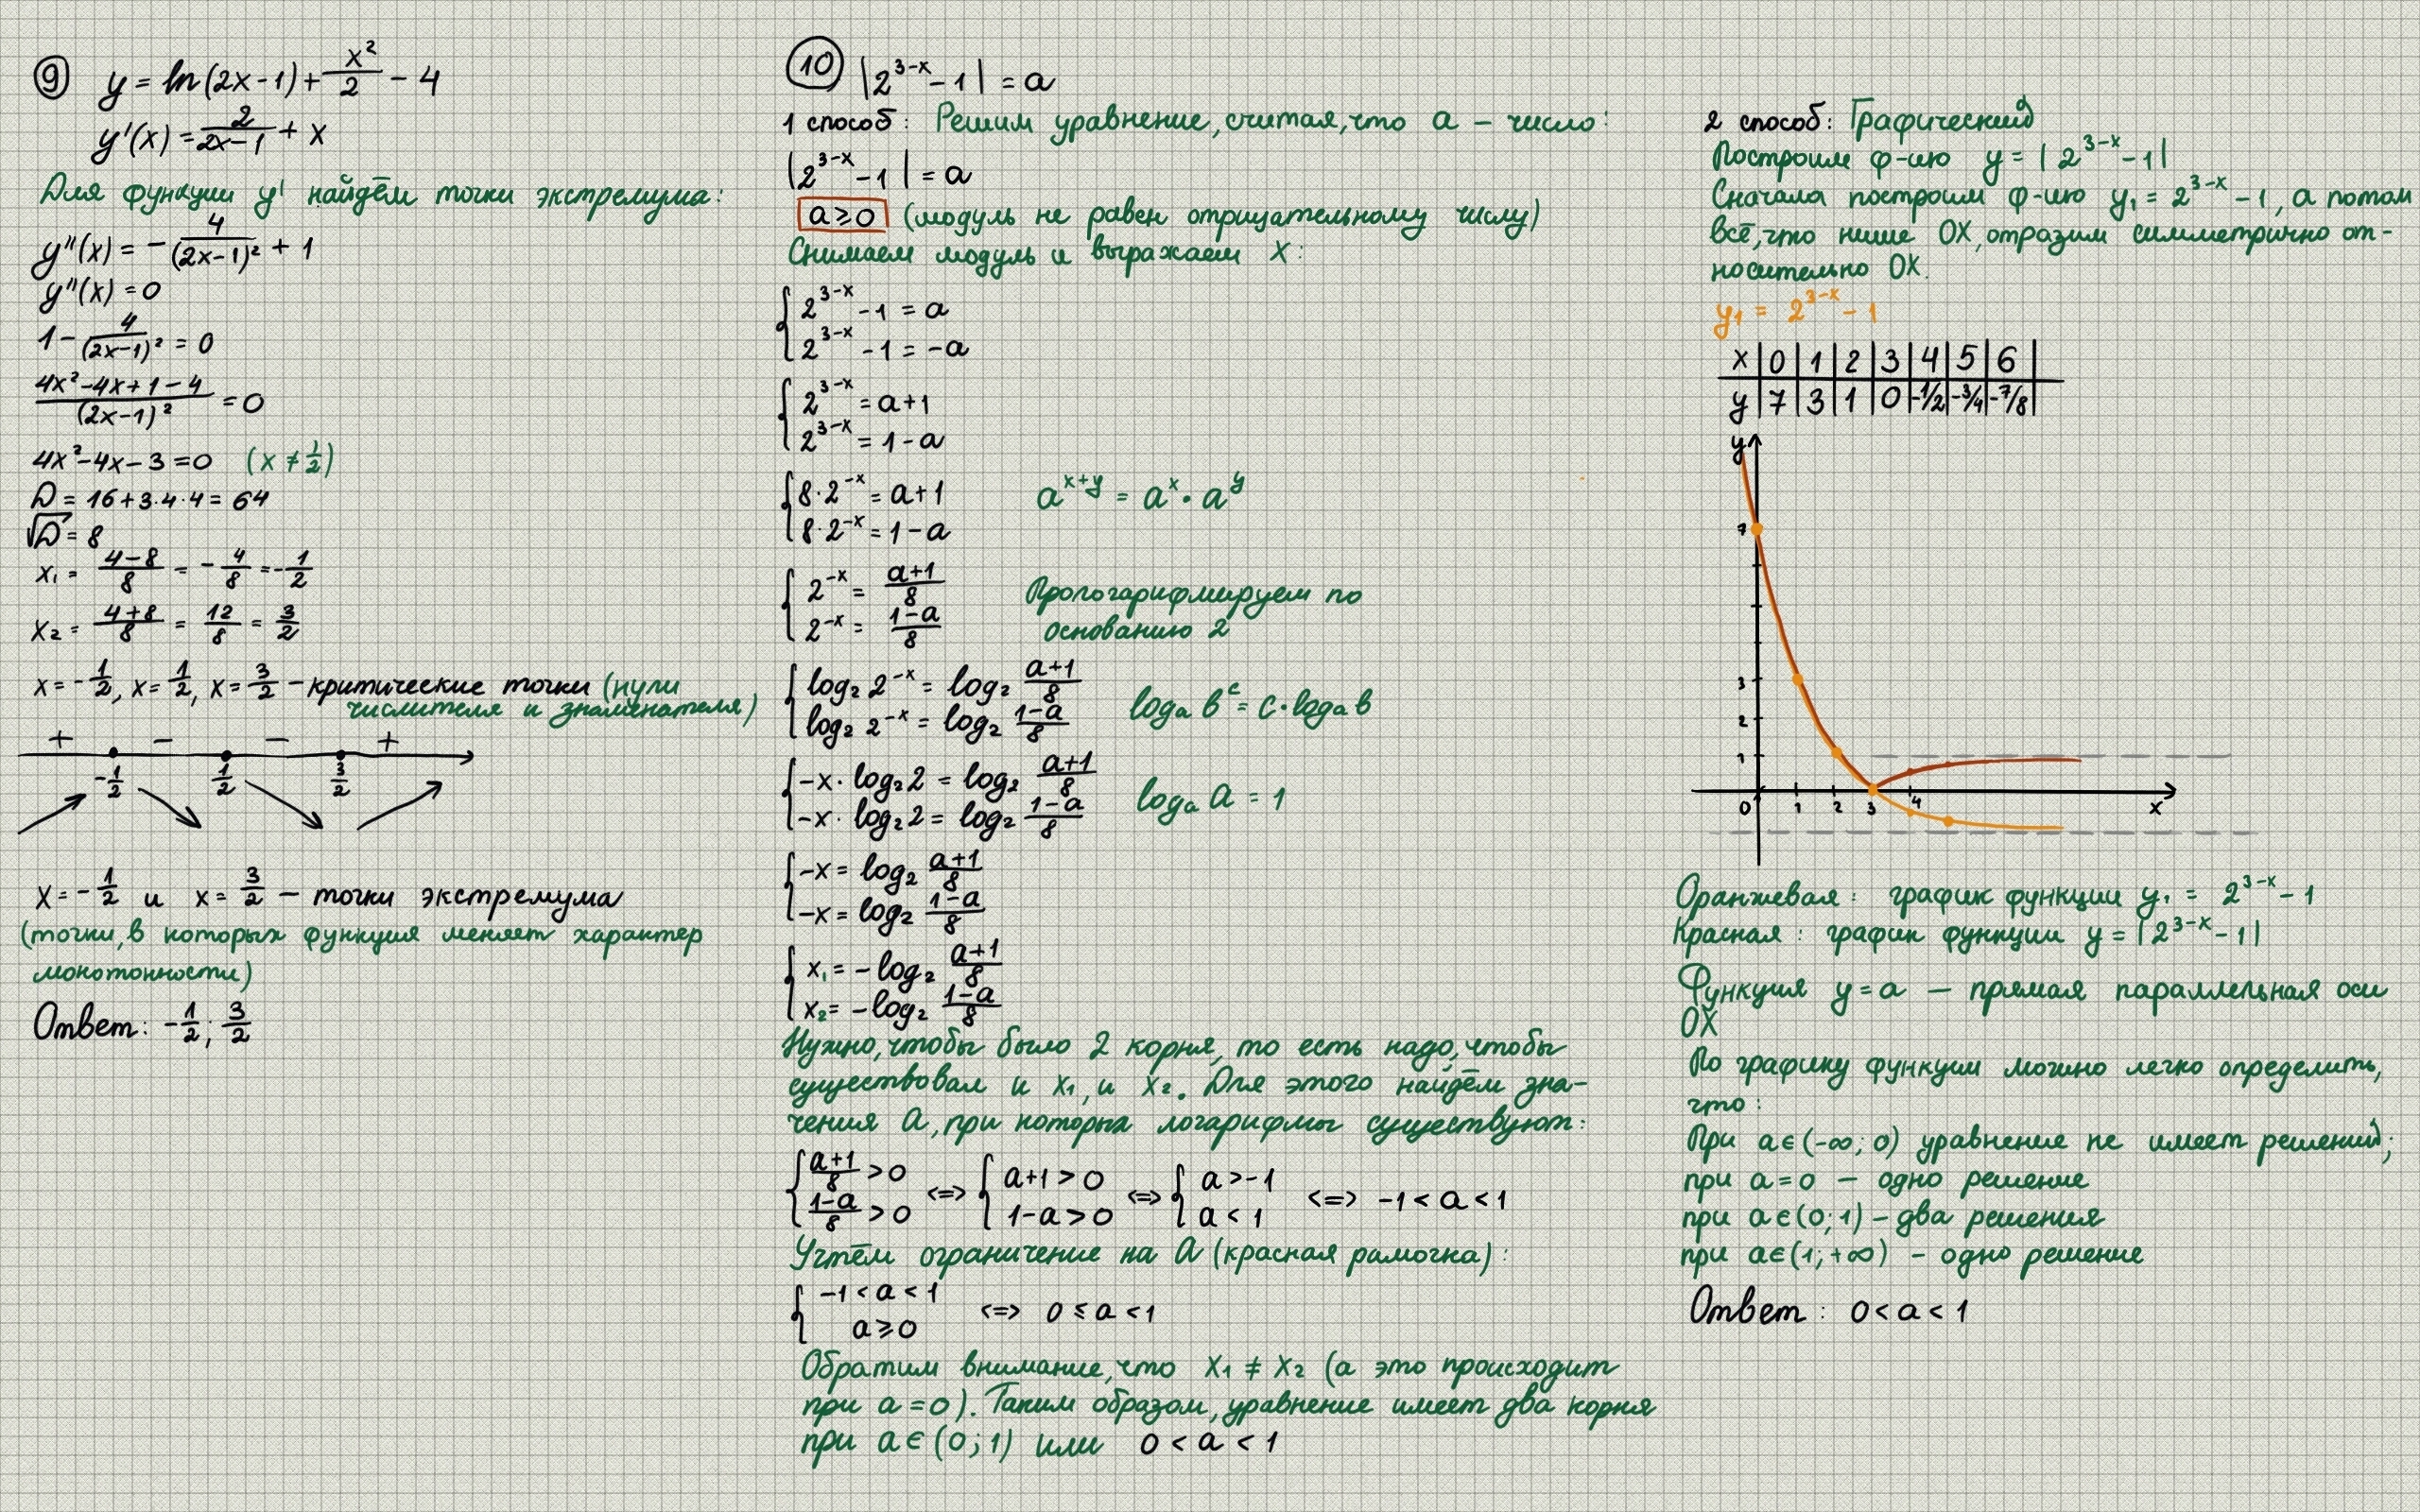 9 y = ln(2x-1) + x²/2 - 4
y'(x) = 2/(2x-1) + x
Для функции y' найдём точки экстремума:
y''(x) = - 4/(2x-1)² + 1
y''(x) = 0
1 - 4/(2x-1)² = 0
(4x²-4x+1-4)/(2x-1)² = 0
4x²-4x-3=0 (x ≠ 1/2)
D = 16+3·4·4 = 64
√D = 8
x₁ = (4-8)/8 = -4/8 = -1/2
x₂ = (4+8)/8 = 12/8 = 3/2
x = -1/2, x = 1/2, x = 3/2 - критические точки (нули
числителя и знаменателя)
+ - - +
-1/2 1/2 3/2
x = -1/2 и x = 3/2 - точки экстремума
(точки, в которых функция меняет характер
монотонности)
Ответ: -1/2; 3/2
10 |2^(3-x) - 1| = a
1 способ: Решим уравнение, считая, что a - число:
|2^(3-x) - 1| = a
a ≥ 0 (модуль не равен отрицательному числу)
Снимаем модуль и выражаем x:
{ 2^(3-x) - 1 = a
2^(3-x) - 1 = -a
{ 2^(3-x) = a+1
2^(3-x) = 1-a
{ 8·2^(-x) = a+1 a^(x+y) = a^x · a^y
8·2^(-x) = 1-a
{ 2^(-x) = (a+1)/8 Прологарифмируем по
2^(-x) = (1-a)/8 основанию 2
{ log₂ 2^(-x) = log₂ (a+1)/8 logₐ b^c = c·logₐ b
log₂ 2^(-x) = log₂ (1-a)/8
{ -x·log₂ 2 = log₂ (a+1)/8 logₐ a = 1
-x·log₂ 2 = log₂ (1-a)/8
{ -x = log₂ (a+1)/8
-x = log₂ (1-a)/8
{ x₁ = -log₂ (a+1)/8
x₂ = -log₂ (1-a)/8
Нужно, чтобы было 2 корня, то есть надо, чтобы
существовал и x₁, и x₂. Для этого найдём зна-
чения a, при которых логарифмы существуют:
{ (a+1)/8 > 0 <=> { a+1 > 0 <=> { a > -1 <=> -1 < a < 1
(1-a)/8 > 0 1-a > 0 a < 1
Учтём ограничение на a (красная рамочка):
{ -1 < a < 1 <=> 0 ≤ a < 1
a ≥ 0
Обратим внимание, что x₁ ≠ x₂ (а это происходит
при a = 0). Таким образом, уравнение имеет два корня
при a ∈ (0; 1) или 0 < a < 1
2 способ: Графический
Построим ф-ию y = |2^(3-x) - 1|
Сначала построим ф-ию y₁ = 2^(3-x) - 1, а потом
всё, что ниже OX, отразим симметрично от-
носительно OX.
y₁ = 2^(3-x) - 1
x | 0 | 1 | 2 | 3 | 4 | 5 | 6 |
y | 7 | 3 | 1 | 0 | -1/2 | -3/4 | -7/8 |
y
7
3
2
1
0 1 2 3 4 x
Оранжевая: график функции y₁ = 2^(3-x) - 1
Красная: график функции y = |2^(3-x) - 1|
Функция y = a — прямая параллельная оси
OX
По графику функции можно легко определить,
что:
При a ∈ (-∞; 0) уравнение не имеет решений;
при a = 0 — одно решение
при a ∈ (0; 1) - два решения
при a ∈ (1; +∞) - одно решение
Ответ: 0 < a < 1